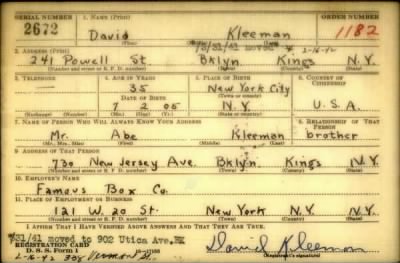 SERIAL NUMBER 1. NAME (Print) ORDER NUMBER
2672 David Kleeman 1182
(First) (Last)
7/31/41 moved * 2-16-42
2. ADDRESS (Print)
241 Powell St Bklyn Kings N.Y.
(Number and street or R. F. D. number) (Town) (County) (State)
3. TELEPHONE 4. AGE IN YEARS 5. PLACE OF BIRTH 6. COUNTRY OF CITIZENSHIP
— 35 New York City
DATE OF BIRTH
7 2 05 N.Y. U.S.A.
(Exchange) (Number) (Mo.) (Day) (Yr.) (State or country)
7. NAME OF PERSON WHO WILL ALWAYS KNOW YOUR ADDRESS 8. RELATIONSHIP OF THAT PERSON
Mr. Abe Kleeman brother
(Mr., Mrs., Miss) (First) (Middle) (Last)
9. ADDRESS OF THAT PERSON
730 New Jersey Ave. Bklyn Kings N.Y.
(Number and street or R. F. D. number) (Town) (County) (State)
10. EMPLOYER'S NAME
Famous Box Co.
11. PLACE OF EMPLOYMENT OR BUSINESS
121 W. 20 St. New York N.Y. N.Y.
(Number and street or R. F. D. number) (Town) (County) (State)
I AFFIRM THAT I HAVE VERIFIED ABOVE ANSWERS AND THAT THEY ARE TRUE.
7/31/41 moved to 902 Utica Ave, BK
REGISTRATION CARD
D. S. S. Form 1 16-17105 David Kleeman
2-16-42 308 Vermont St. (Registrant's signature)